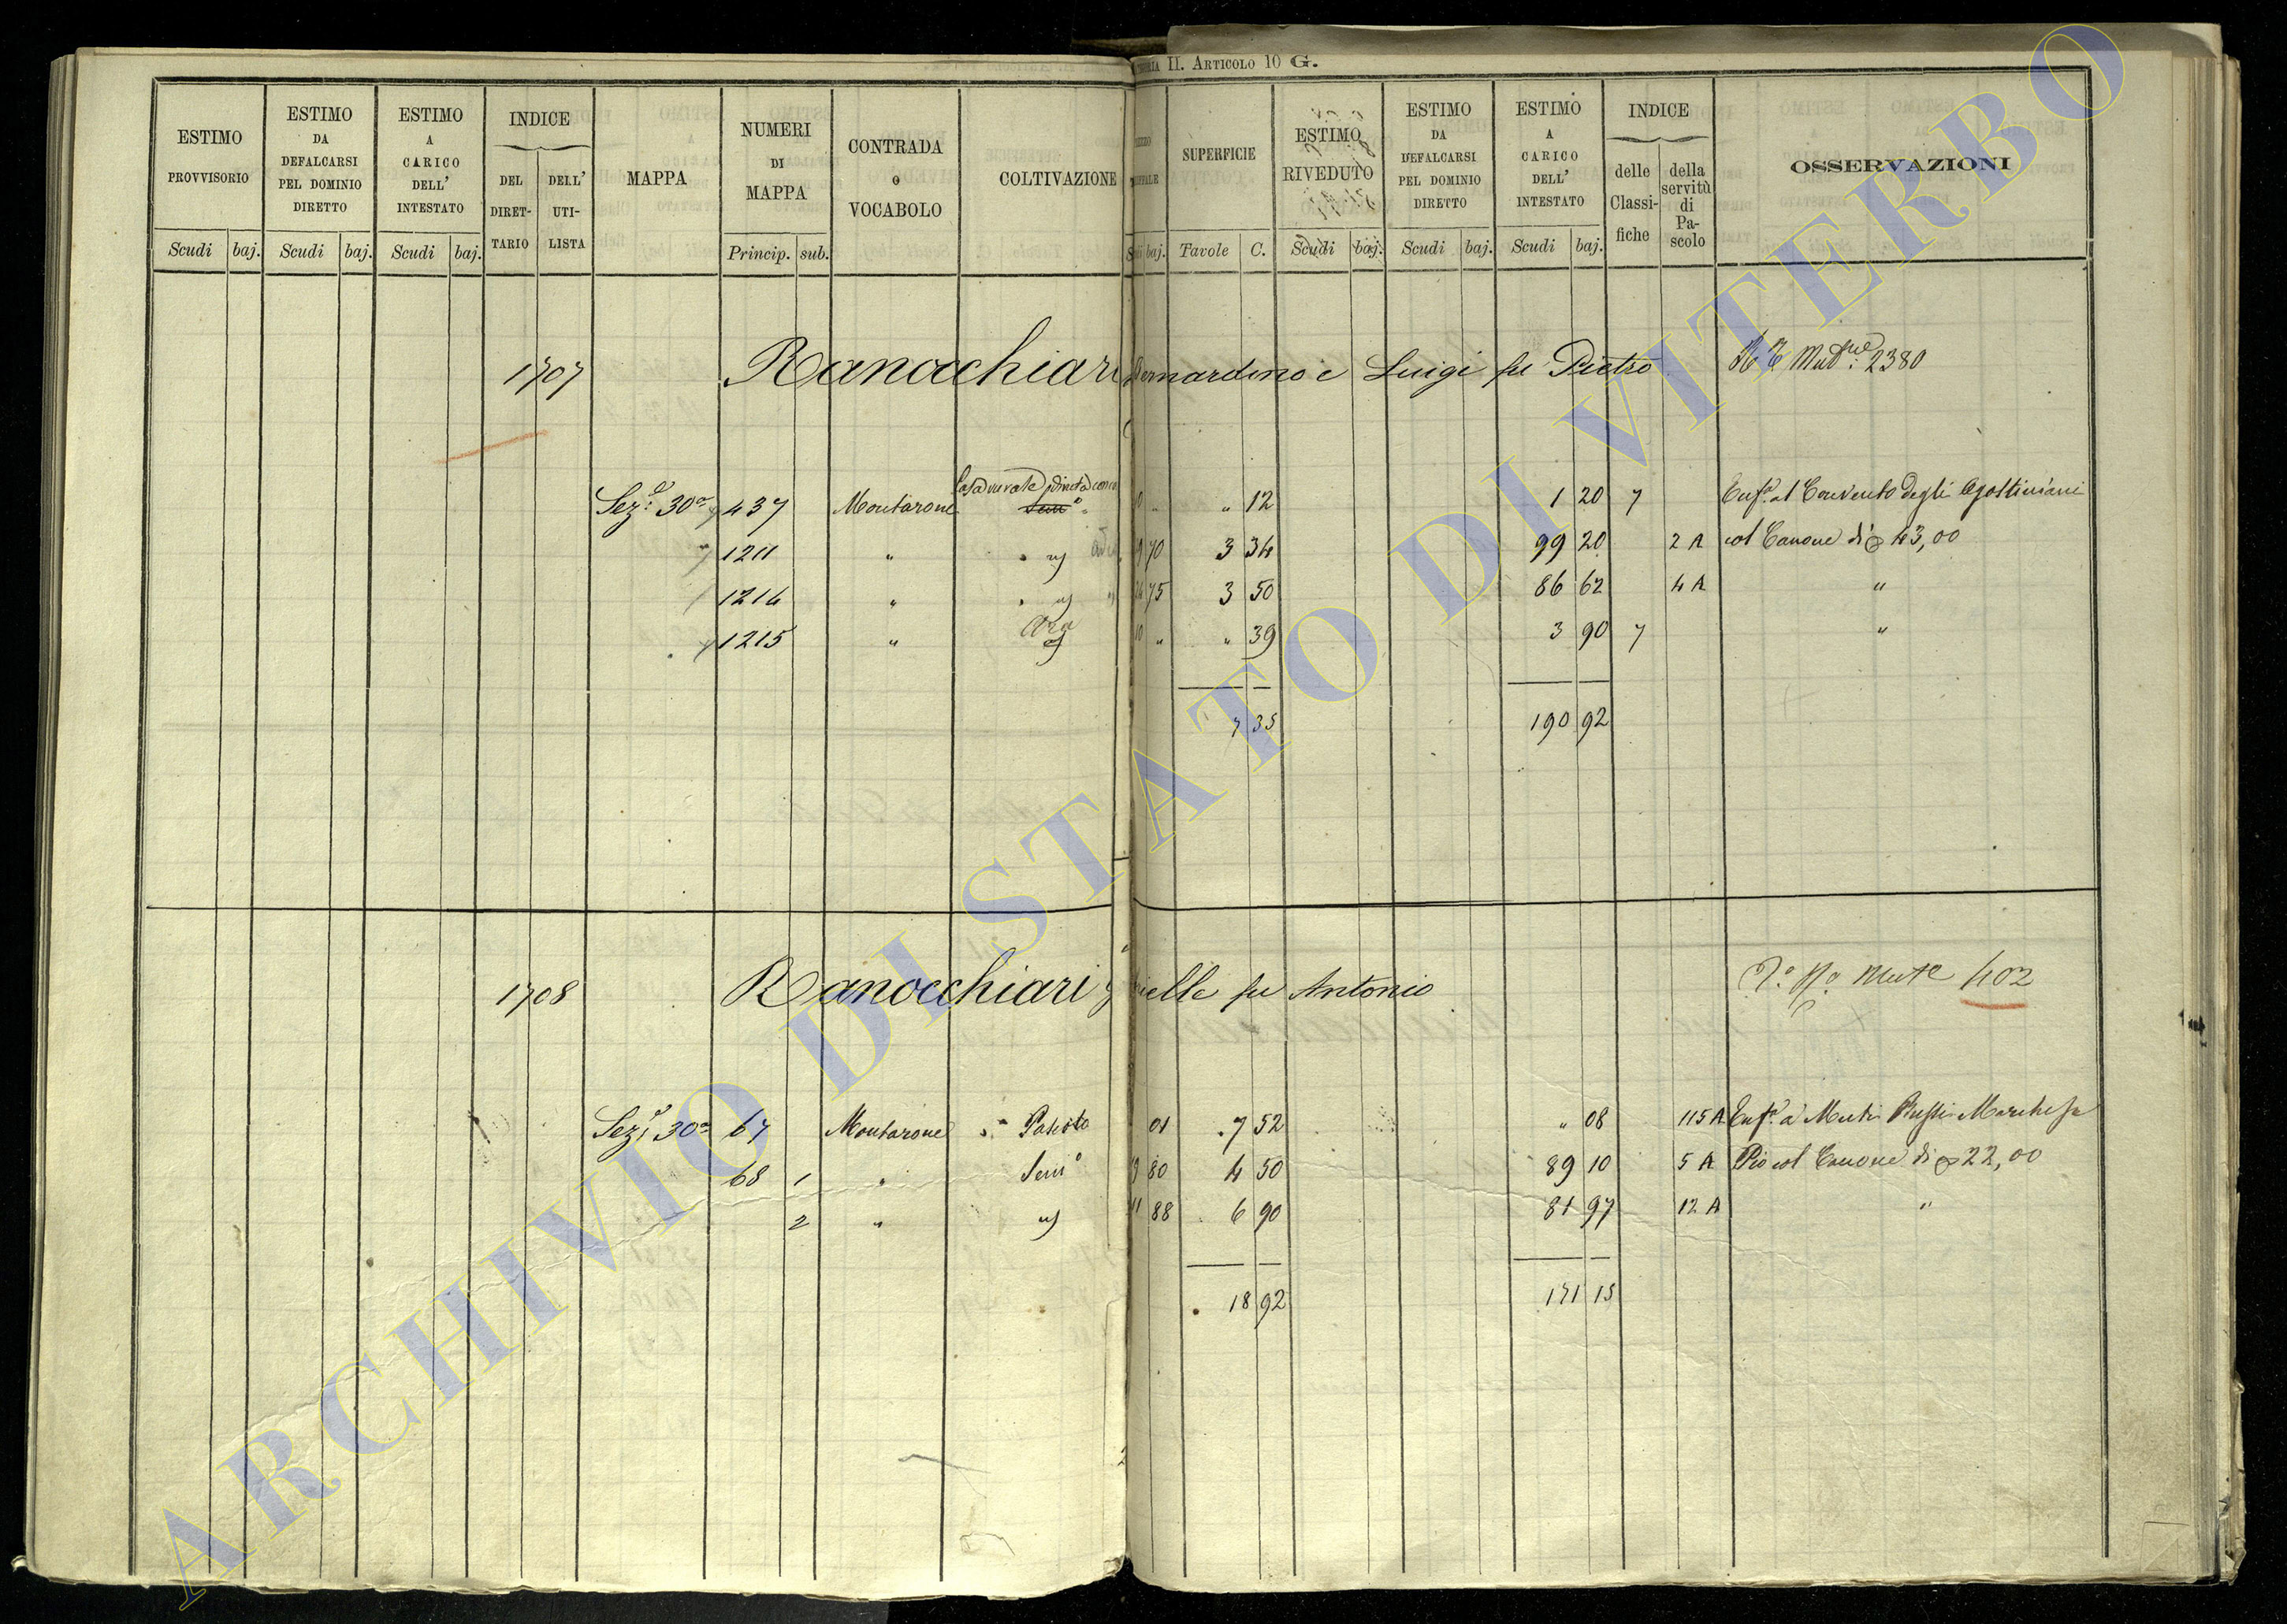 II. Articolo 10 G.
ESTIMO PROVVISORIO
ESTIMO DA DEFALCARSI PEL DOMINIO DIRETTO
ESTIMO A CARICO DELL' INTESTATO
INDICE
DEL DIRET-TARIO
DELL' UTI-LISTA
MAPPA
NUMERI DI MAPPA
CONTRADA o VOCABOLO
COLTIVAZIONE
SUPERFICIE
ESTIMO RIVEDUTO
ESTIMO DA DEFALCARSI PEL DOMINIO DIRETTO
ESTIMO A CARICO DELL' INTESTATO
INDICE
delle Classi-fiche
della servitù di Pa-scolo
OSSERVAZIONI
Scudi baj. Scudi baj. Scudi baj. Princip. sub. baj. Tavole C. Scudi baj. Scudi baj. Scudi baj.
1707 Ranocchiari Bernardino e Luigi fu Pietro 2380
Sez.e 30a 437 Montarone 10 „ „ 12 1 20 7 Enf.a al Convento degli Agostiniani
1211 „ 70 3 34 99 20 2 A col Canone di 43,00
1214 „ 75 3 50 86 62 4 A „
1215 „ Ara 10 „ „ 39 3 90 7 „
7 35 190 92
1708 Ranocchiari fu Antonio 402
Sez.e 30a 67 Montarone Pascolo 01 7 52 „ 08 115 A Enf.a a Muti Marchese
68 1 „ Sem.o 80 4 50 89 10 5 A Pio col Canone di 22,00
2 „ 11 88 6 90 81 97 12 A „
18 92 171 15
ARCHIVIO DI STATO DI VITERBO